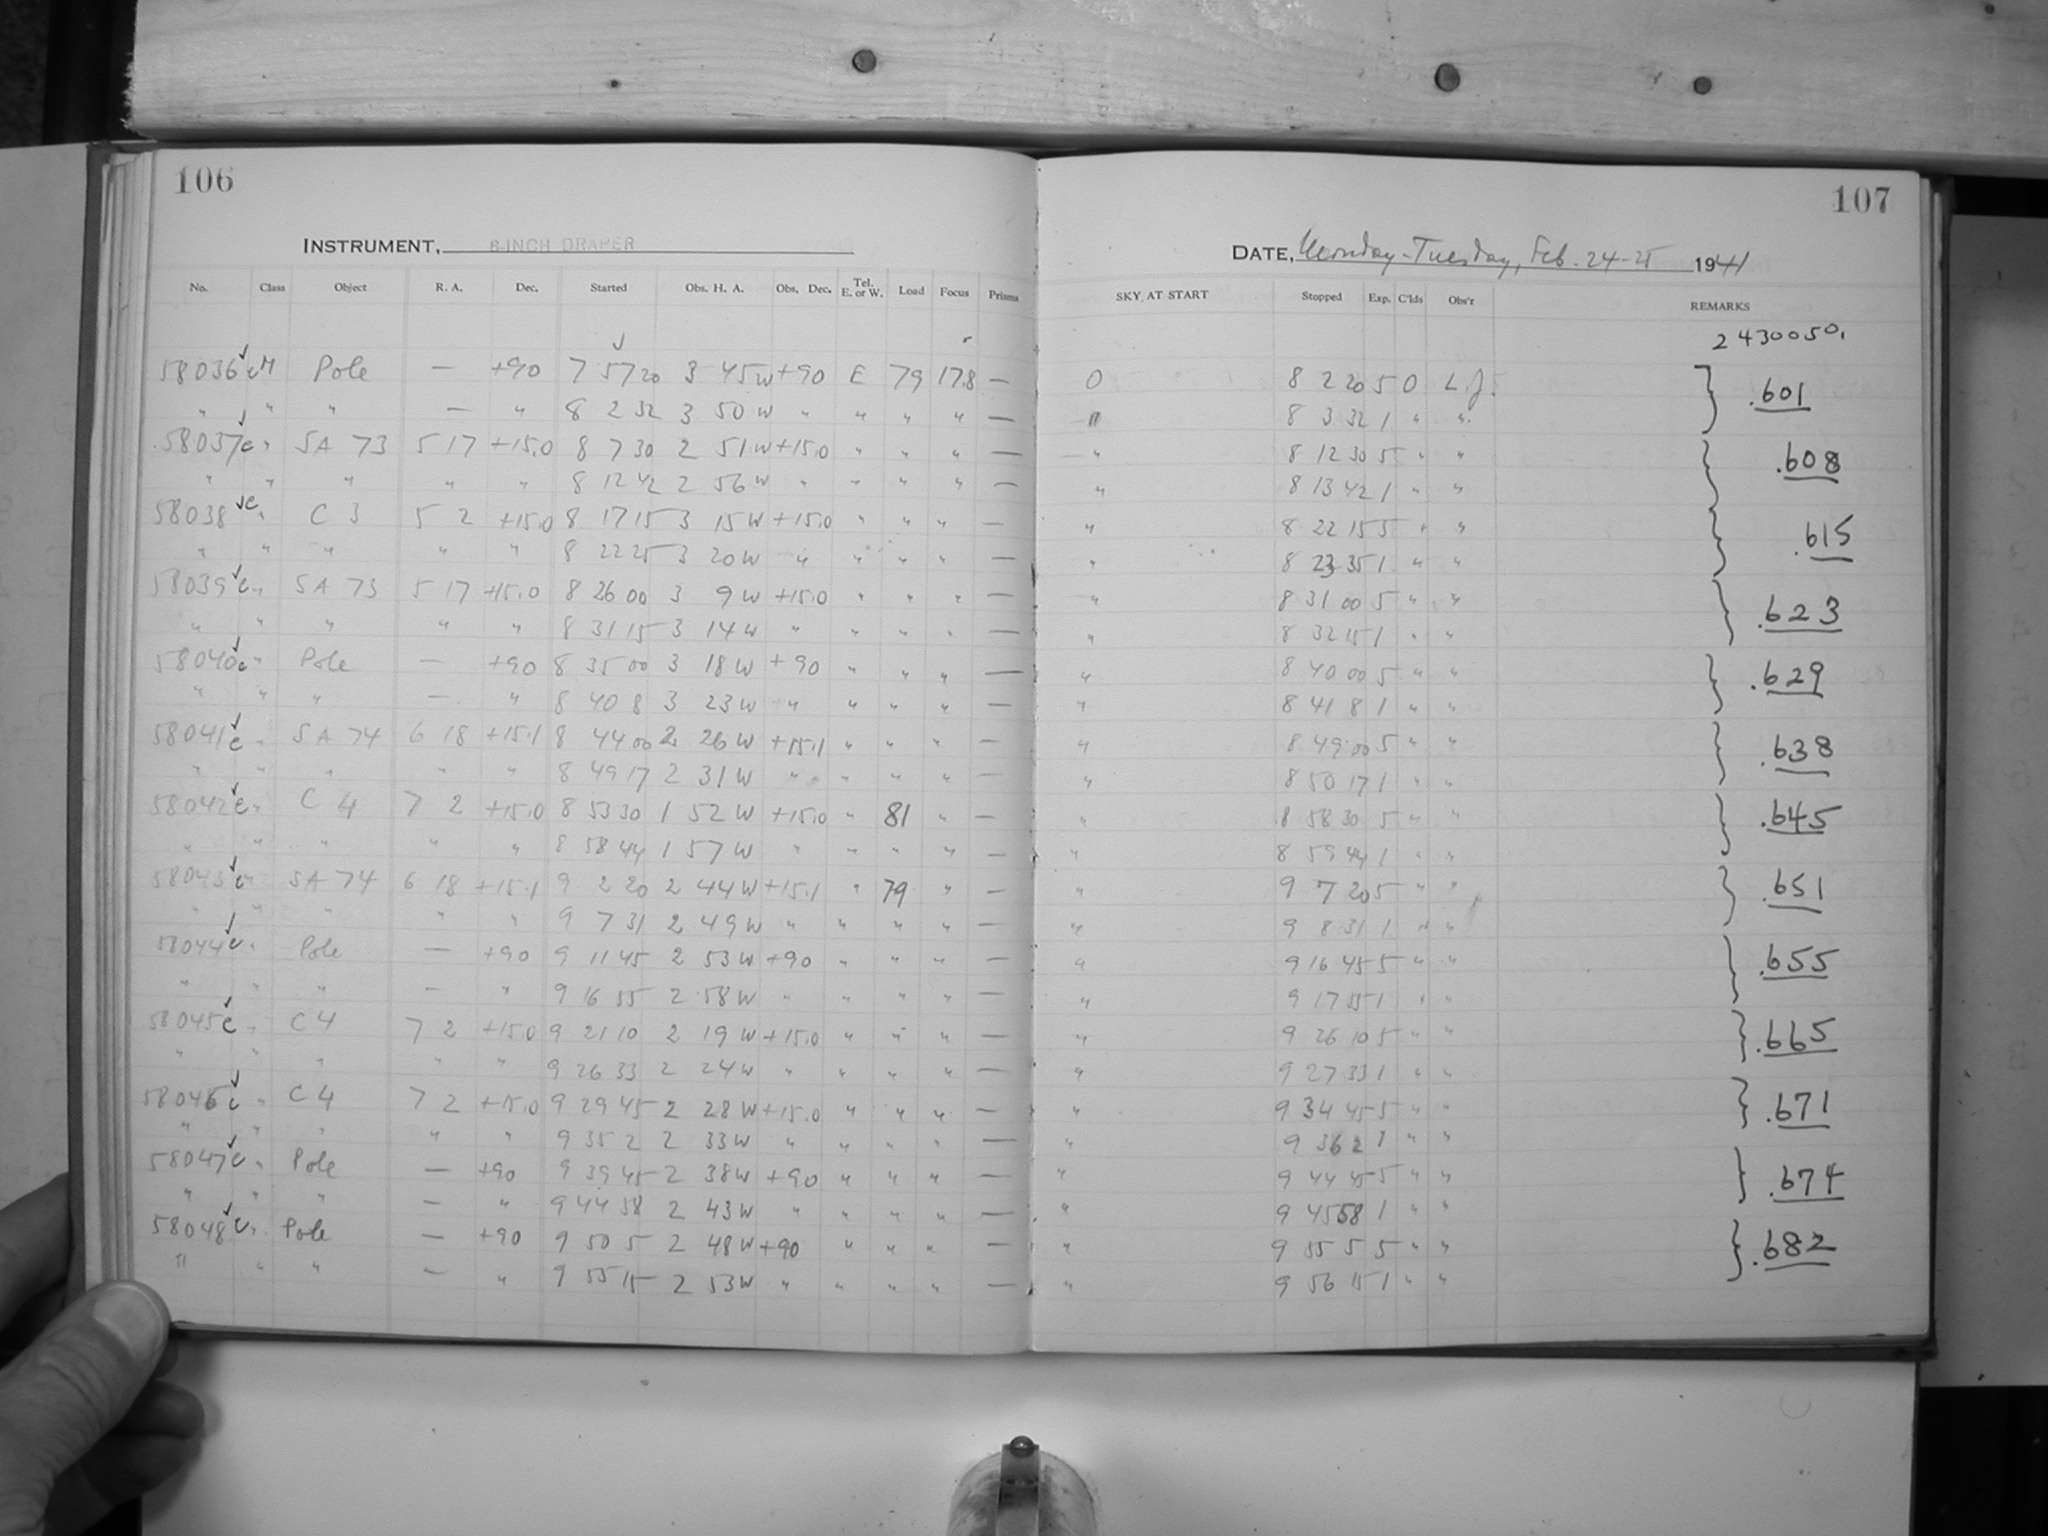 106
INSTRUMENT, 8-INCH DRAPER
No. Class Object R. A. Dec. Started Obs. H. A. Obs. Dec. Tel. E. or W. Load Focus Prisms
58036 c M Pole — +90 7 57 20 3 45 W +90 E 79 17.8 —
" " " — " 8 2 32 3 50 W " " " " —
58037 c " SA 73 5 17 +15.0 8 7 30 2 51 W +15.0 " " " —
" " " " " 8 12 42 2 56 W " " " " —
58038 c " C 3 5 2 +15.0 8 17 15 3 15 W +15.0 " " " —
" " " " " 8 22 25 3 20 W " " " " —
58039 c " SA 73 5 17 +15.0 8 26 00 3 9 W +15.0 " " " —
" " " " " 8 31 15 3 14 W " " " " —
58040 c " Pole — +90 8 35 00 3 18 W +90 " " " —
" " " — " 8 40 8 3 23 W " " " " —
58041 c " SA 74 6 18 +15.1 8 44 00 2 26 W +15.1 " " " —
" " " " " 8 49 17 2 31 W " " " " —
58042 c " C 4 7 2 +15.0 8 53 30 1 52 W +15.0 " 81 " —
" " " " " 8 58 44 1 57 W " " " " —
58043 c " SA 74 6 18 +15.1 9 2 20 2 44 W +15.1 " 79 " —
" " " " " 9 7 31 2 49 W " " " " —
58044 c " Pole — +90 9 11 45 2 53 W +90 " " " —
" " " — " 9 16 55 2 58 W " " " " —
58045 c " C 4 7 2 +15.0 9 21 10 2 19 W +15.0 " " " —
" " " " " 9 26 33 2 24 W " " " " —
58046 c " C 4 7 2 +15.0 9 29 45 2 28 W +15.0 " " " —
" " " " " 9 35 2 2 33 W " " " " —
58047 c " Pole — +90 9 39 45 2 38 W +90 " " " —
" " " — " 9 44 58 2 43 W " " " " —
58048 c " Pole — +90 9 50 5 2 48 W +90 " " " —
" " " — " 9 55 15 2 53 W " " " " —
107
DATE, Monday-Tuesday, Feb. 24-25 1941
SKY AT START Stopped Exp. C'lds Obs'r REMARKS
2430050.
0 8 2 20 5 0 L.J. .601
" 8 3 32 1 " "
" 8 12 30 5 " " .608
" 8 13 42 1 " "
" 8 22 15 5 " " .615
" 8 23 35 1 " "
" 8 31 00 5 " " .623
" 8 32 15 1 " "
" 8 40 00 5 " " .629
" 8 41 8 1 " "
" 8 49 00 5 " " .638
" 8 50 17 1 " "
" 8 58 30 5 " " .645
" 8 59 44 1 " "
" 9 7 20 5 " " .651
" 9 8 31 1 " "
" 9 16 45 5 " " .655
" 9 17 55 1 " "
" 9 26 10 5 " " .665
" 9 27 33 1 " "
" 9 34 45 5 " " .671
" 9 36 2 1 " "
" 9 44 45 5 " " .674
" 9 45 58 1 " "
" 9 55 5 5 " " .682
" 9 56 15 1 " "